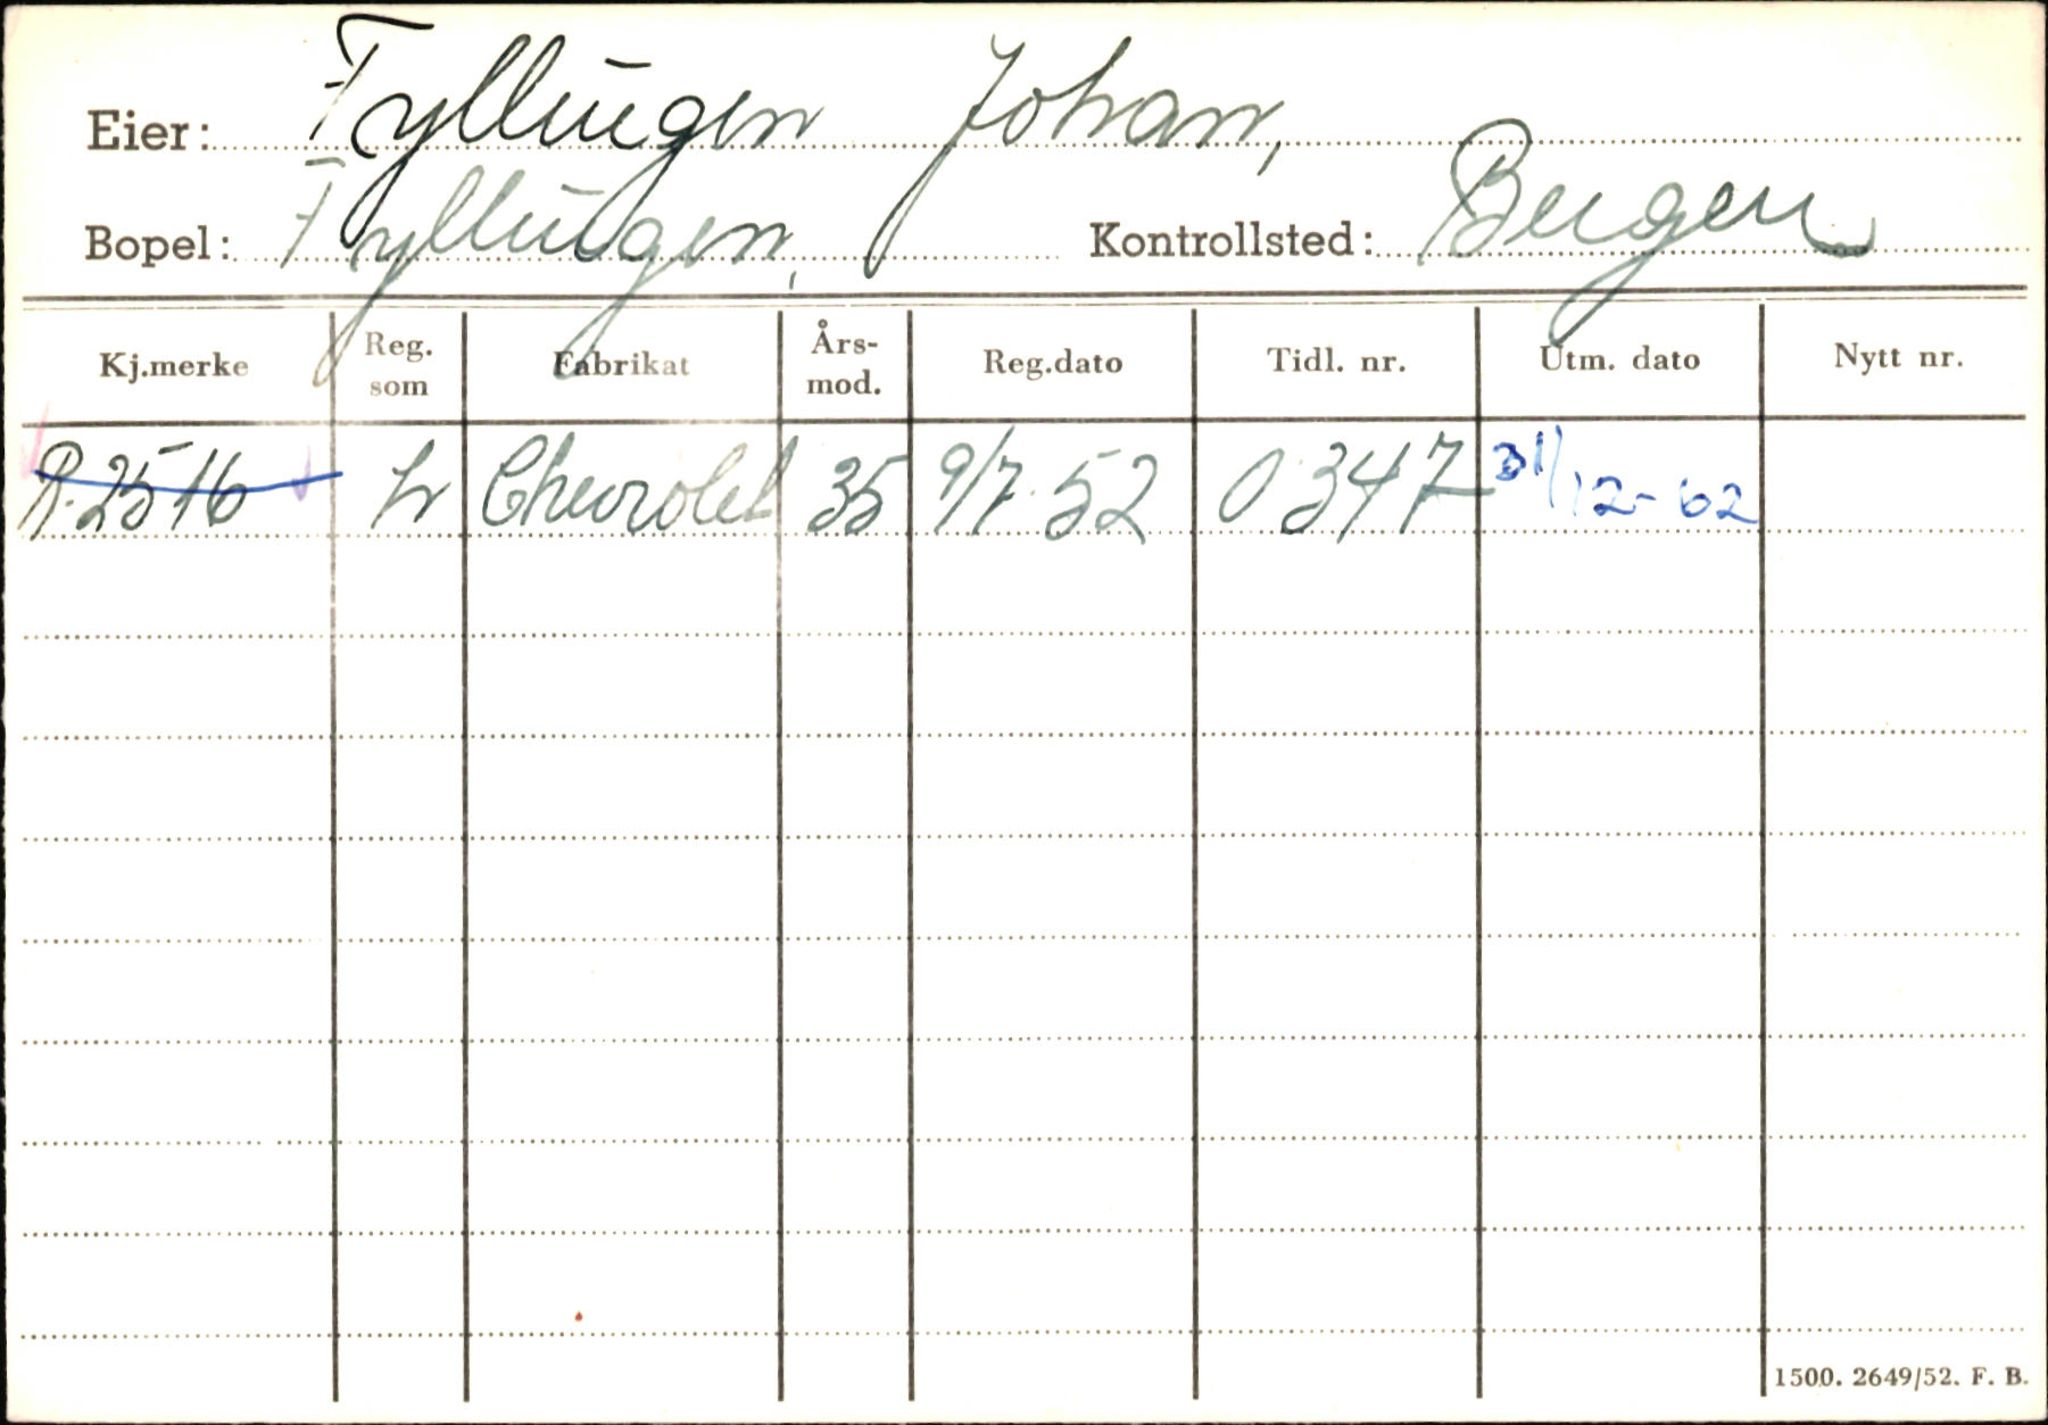 Eier: Fyllingen Johan,
Bopel: Fyllingen, Kontrollsted: Bergen
Kj.merke Reg. som Fabrikat Års- mod. Reg.dato Tidl. nr. Utm. dato Nytt nr.
R.2516 Lv Chevrolet 35 9/7.52 0347 31/12-62
1500. 2649/52. F. B.